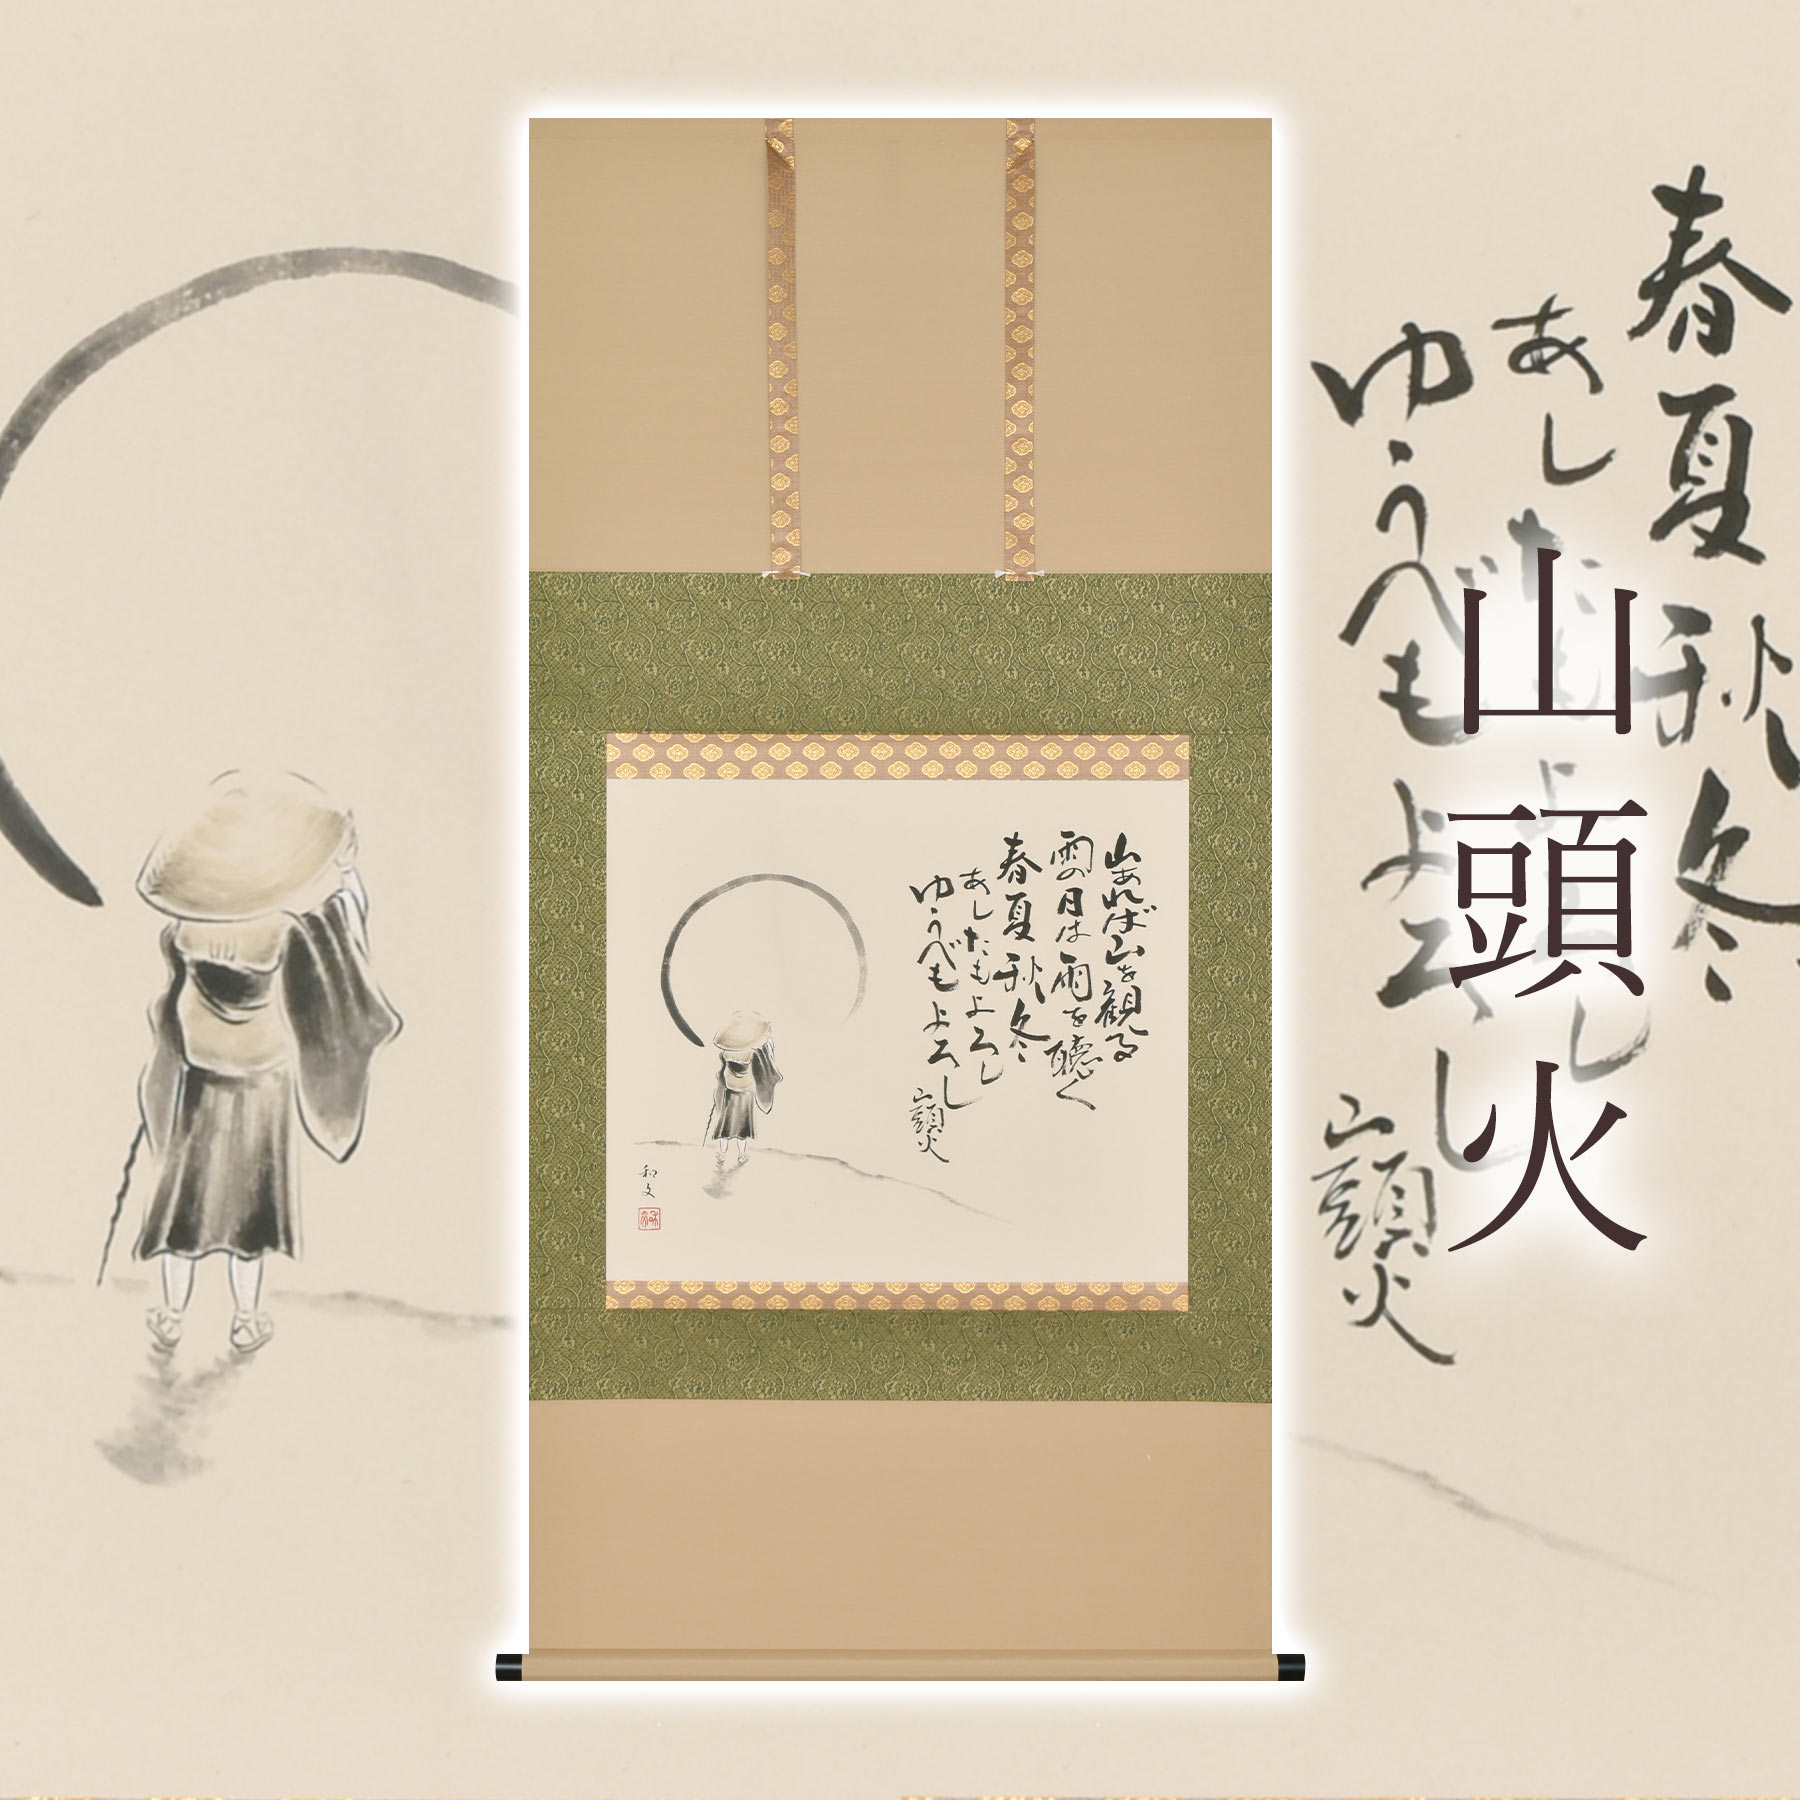 山あれば山を観る
雨の日は雨を聴く
春夏秋冬
あしたもよろし
ゆうべもよろし
山頭火
和文
春夏秋冬
あしたもよろし
ゆうべもよろし
山頭火
山頭火